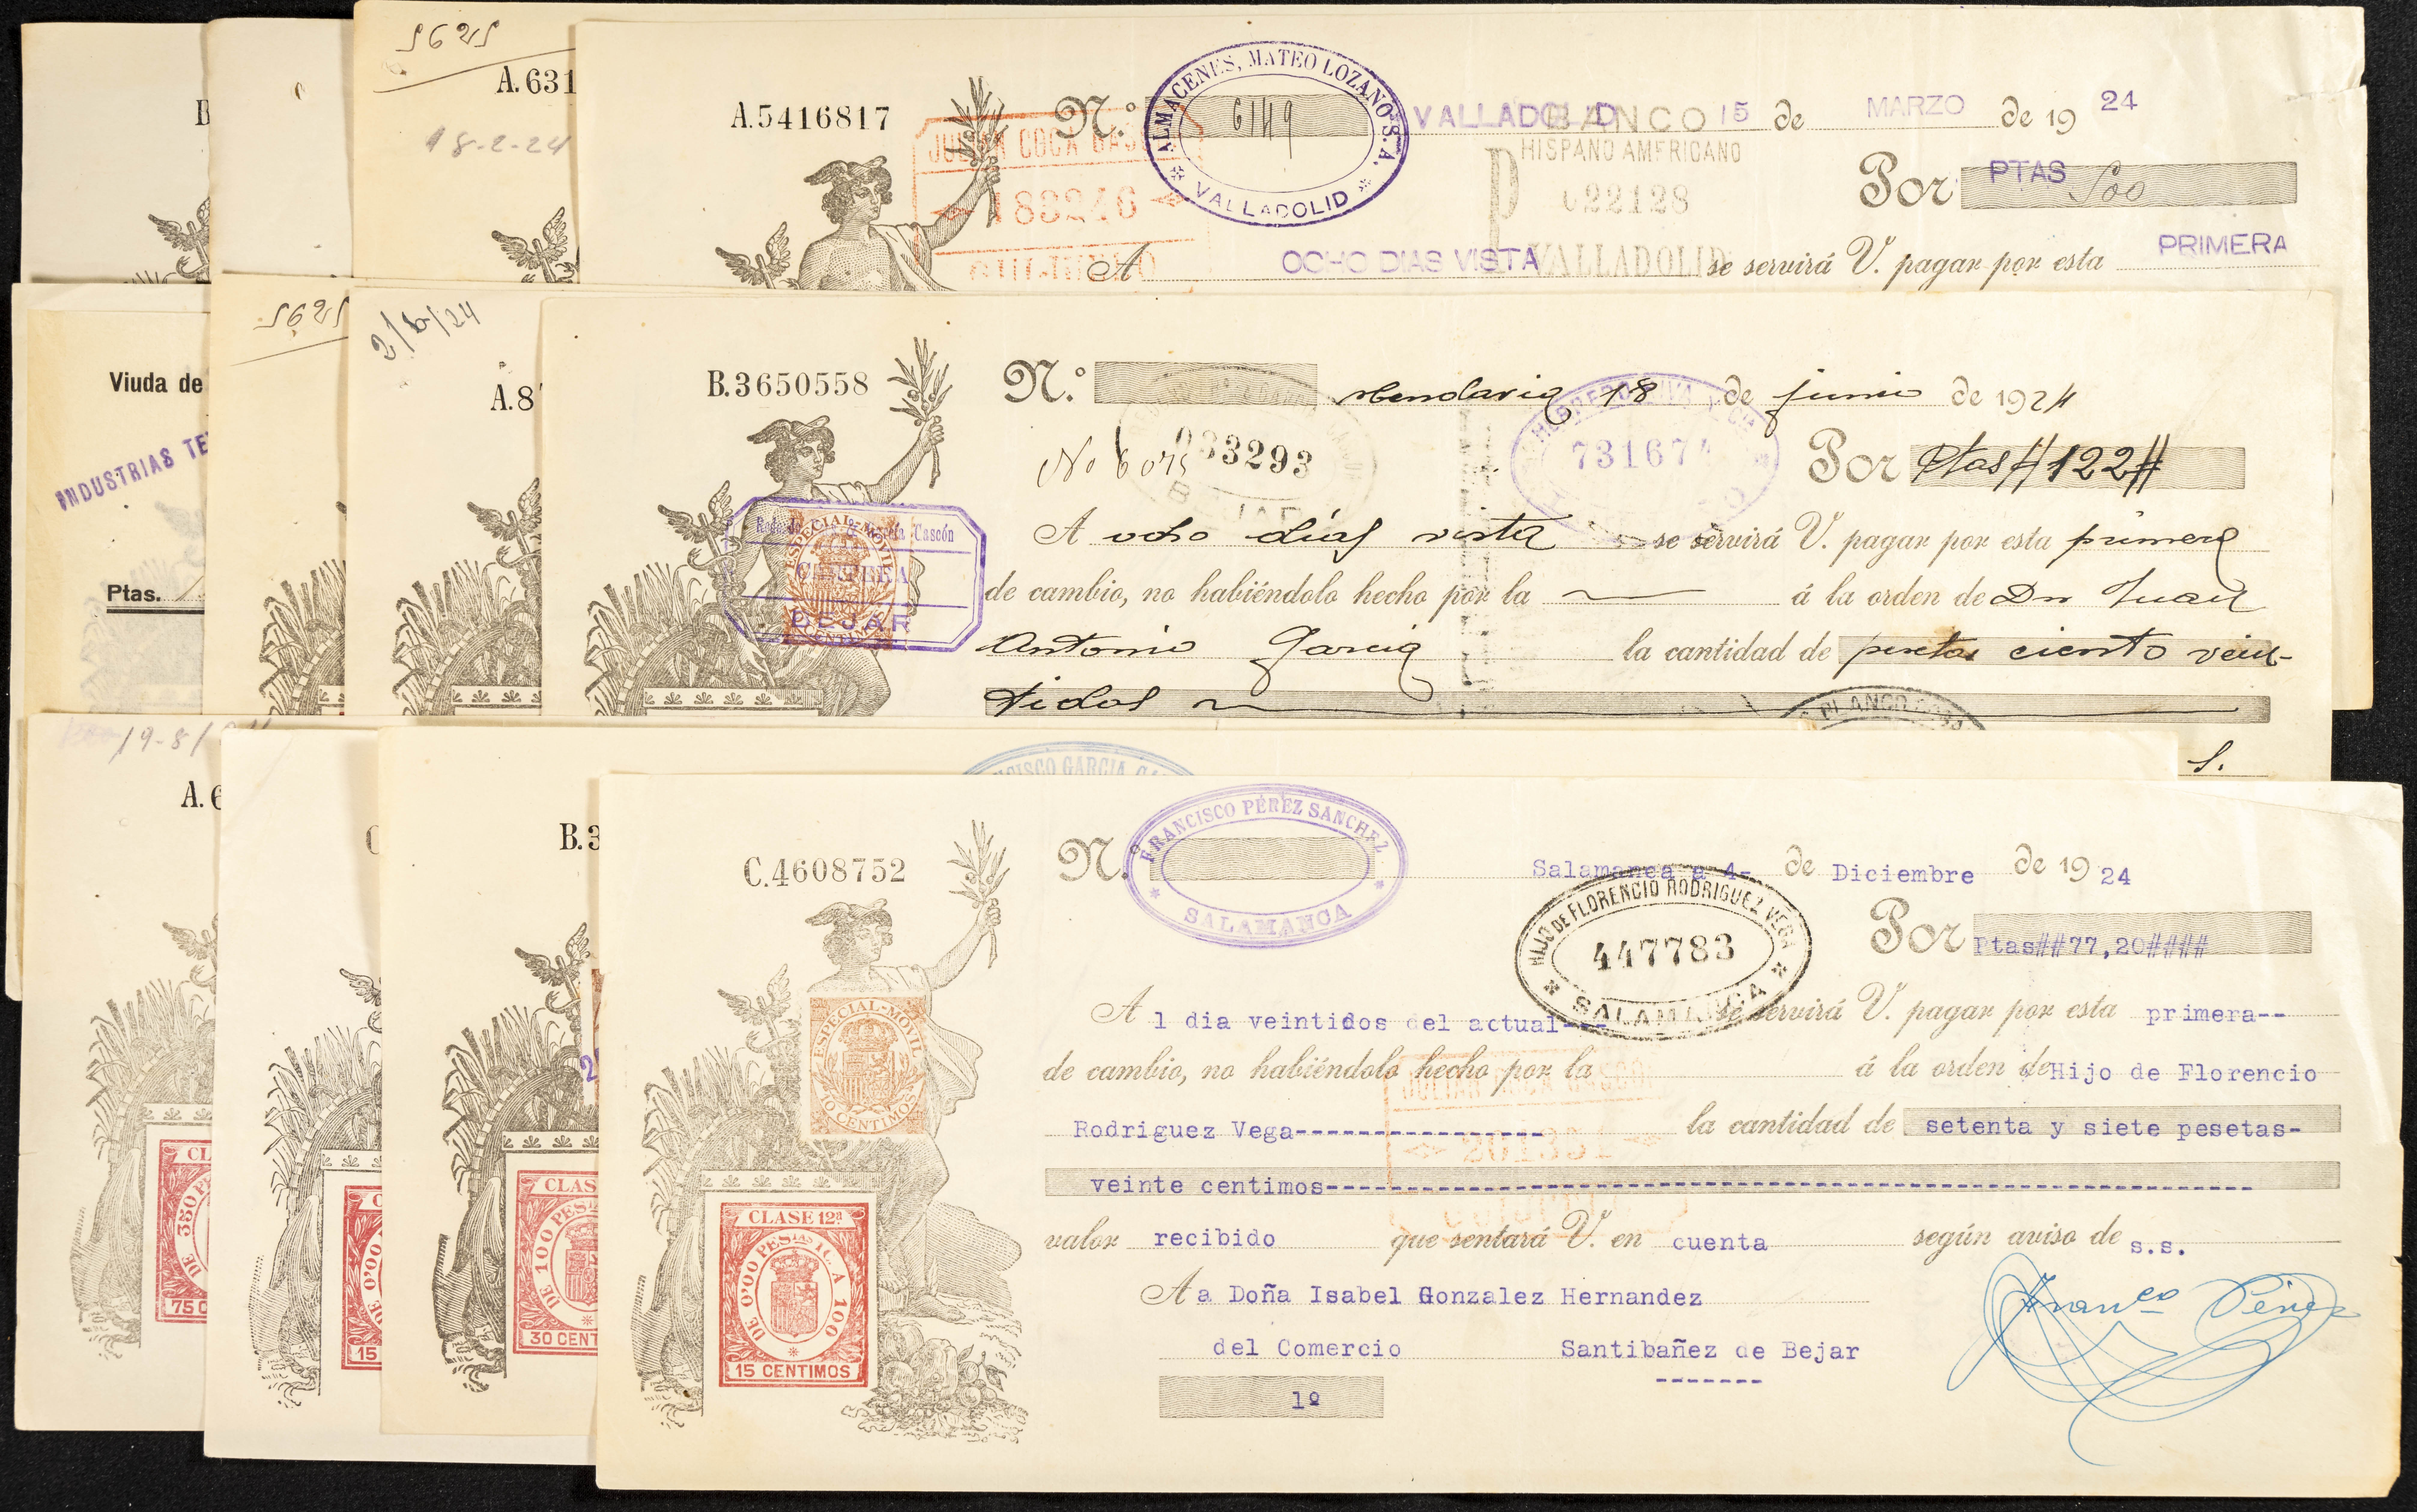 5625
A.631
18-2-24
A.5416817
N.º 6149
ALMACENES, MATEO LOZANO S.A.
* VALLADOLID *
VALLADOLID 15 de MARZO de 19 24
BANCO
HISPANO AMERICANO
022128
VALLADOLID
JULIAN COCA GASCON
183246
Por PTAS 500
A OCHO DIAS VISTA se servirá V. pagar por esta PRIMERA
Viuda de
INDUSTRIAS TE
Ptas.
5625
2/6/24
A.8
B.3650558
N.º Mendavia 18 de junio de 1924
033293
731674
Por Ptas # 122 #
A ocho días vista se servirá V. pagar por esta primera
de cambio, no habiéndolo hecho por la á la orden de Dn Juan
Antonio Garcia la cantidad de pesetas ciento vein-
tidos
ESPECIAL-MOVIL
Cascón
BEJAR
S.
19-8/
A.6
C
B.3
FRANCISCO GARCIA
C.4608752
N.º
FRANCISCO PÉREZ SANCHEZ
* SALAMANCA *
Salamanca a 4- de Diciembre de 19 24
HIJO DE FLORENCIO RODRIGUEZ VEGA
447783
* SALAMANCA *
Por Ptas##77,20####
A 1 dia veintidos del actual--- se servirá V. pagar por esta primera--
de cambio, no habiéndolo hecho por la á la orden de Hijo de Florencio
Rodriguez Vega---------------- la cantidad de setenta y siete pesetas-
veinte centimos-----------------------------------------------------------
valor recibido que sentará V. en cuenta según aviso de s.s.
A a Doña Isabel Gonzalez Hernandez
del Comercio Santibañez de Bejar
-------
1º
Franco Pérez
ESPECIAL-MOVIL
10 CENTIMOS
CLASE 12ª
DE 0'00 PESTAS IC. A 100
15 CENTIMOS
CLAS
DE 100 PES
30 CENT
DE 0'00
15
CL
DE 350 P
75 C